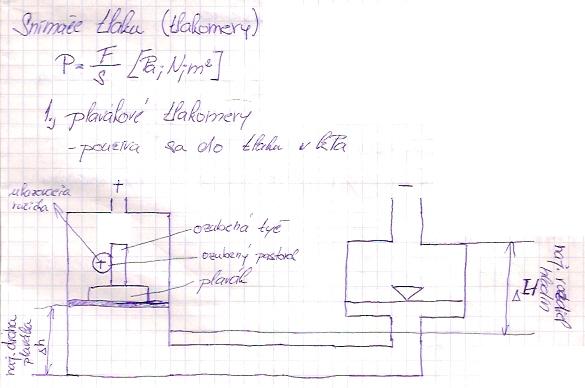 Snímače tlaku (tlakomery)
P = F/S [Pa; N; m²]
1, plavákové tlakomery
- používa sa do tlaku v kPa
+
-
ukazovacia
ručička
ozubená tyč
ozubený pastorok
plavák
naj. dráha
plaváka
Δh
ΔH
naj. rozdiel
hladín